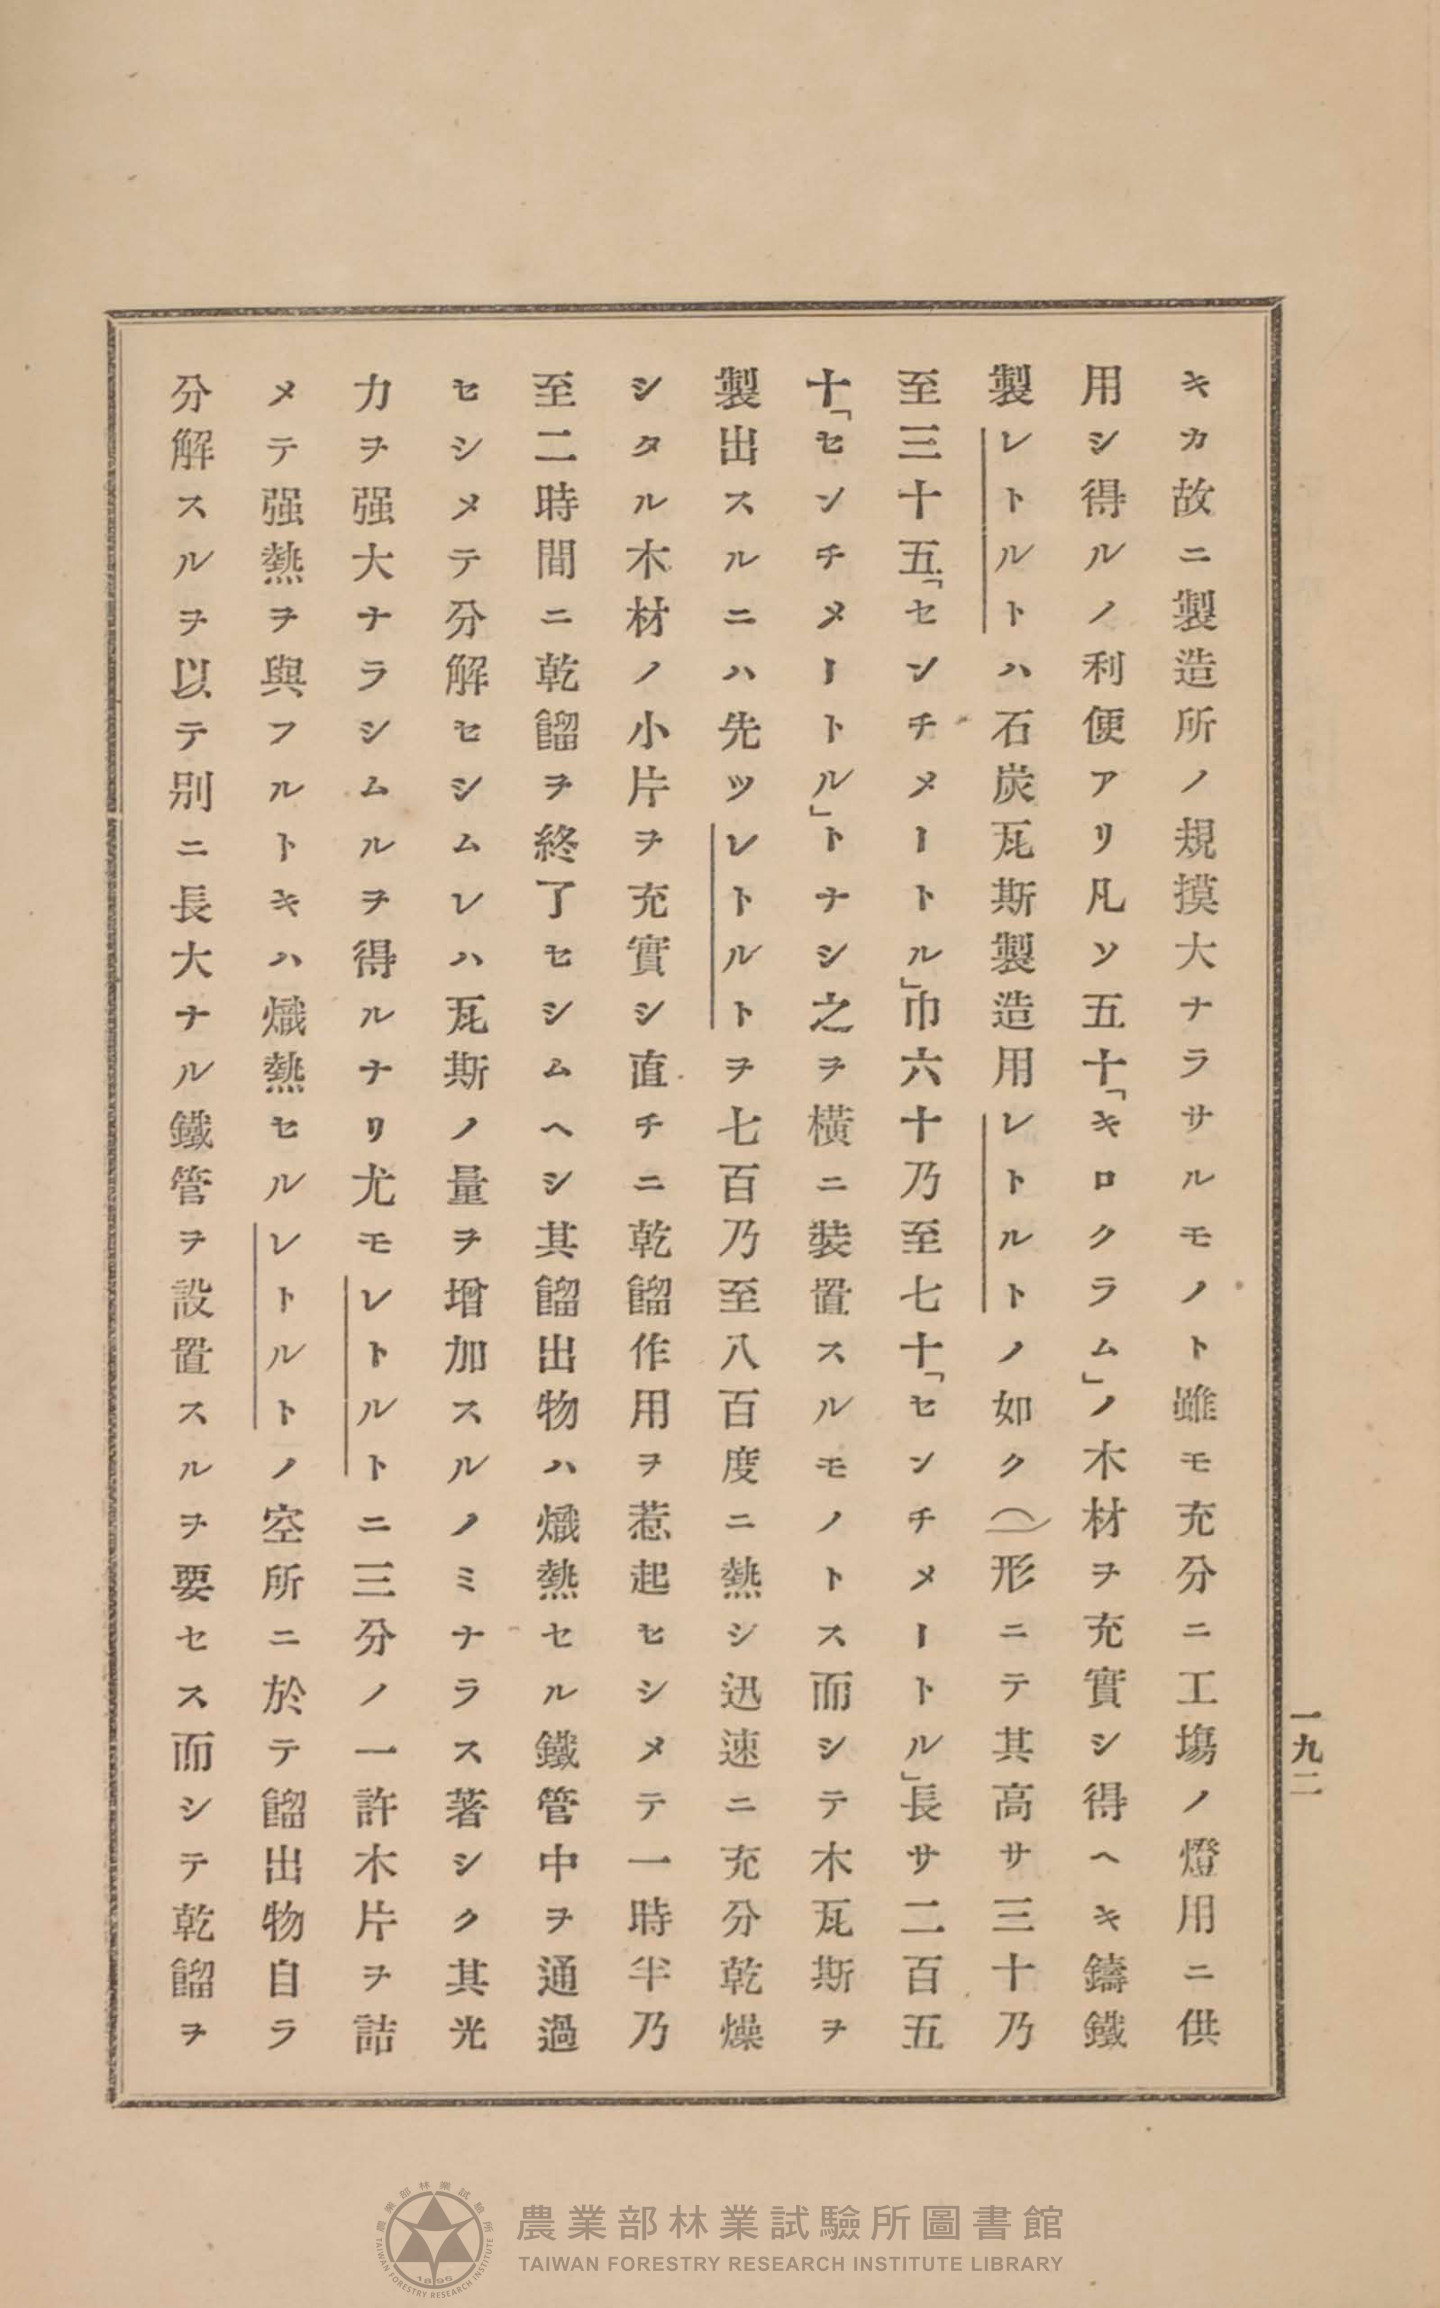 キカ故ニ製造所ノ規摸大ナラサルモノト雖モ充分ニ工塲ノ燈用ニ供
用シ得ルノ利便アリ凡ソ五十「キロクラム」ノ木材ヲ充實シ得ヘキ鑄鐵
製レトルトハ石炭瓦斯製造用レトルトノ如ク形ニテ其高サ三十乃
至三十五「センチメートル」巾六十乃至七十「センチメートル」長サ二百五
十「センチメートル」トナシ之ヲ橫ニ裝置スルモノトス而シテ木瓦斯ヲ
製出スルニハ先ツレトルトヲ七百乃至八百度ニ熱シ迅速ニ充分乾燥
シタル木材ノ小片ヲ充實シ直チニ乾餾作用ヲ惹起セシメテ一時半乃
至二時間ニ乾餾ヲ終了セシムヘシ其餾出物ハ熾熱セル鐵管中ヲ通過
セシメテ分解セシムレハ瓦斯ノ量ヲ增加スルノミナラス著シク其光
力ヲ强大ナラシムルヲ得ルナリ尤モレトルトニ三分ノ一許木片ヲ詰
メテ强熱ヲ與フルトキハ熾熱セルレトルトノ空所ニ於テ餾出物自ラ
分解スルヲ以テ別ニ長大ナル鐵管ヲ設置スルヲ要セス而シテ乾餾ヲ
一九二
農業部林業試驗所圖書館
TAIWAN FORESTRY RESEARCH INSTITUTE LIBRARY
農業部林業試驗所
TAIWAN FORESTRY RESEARCH INSTITUTE
1896